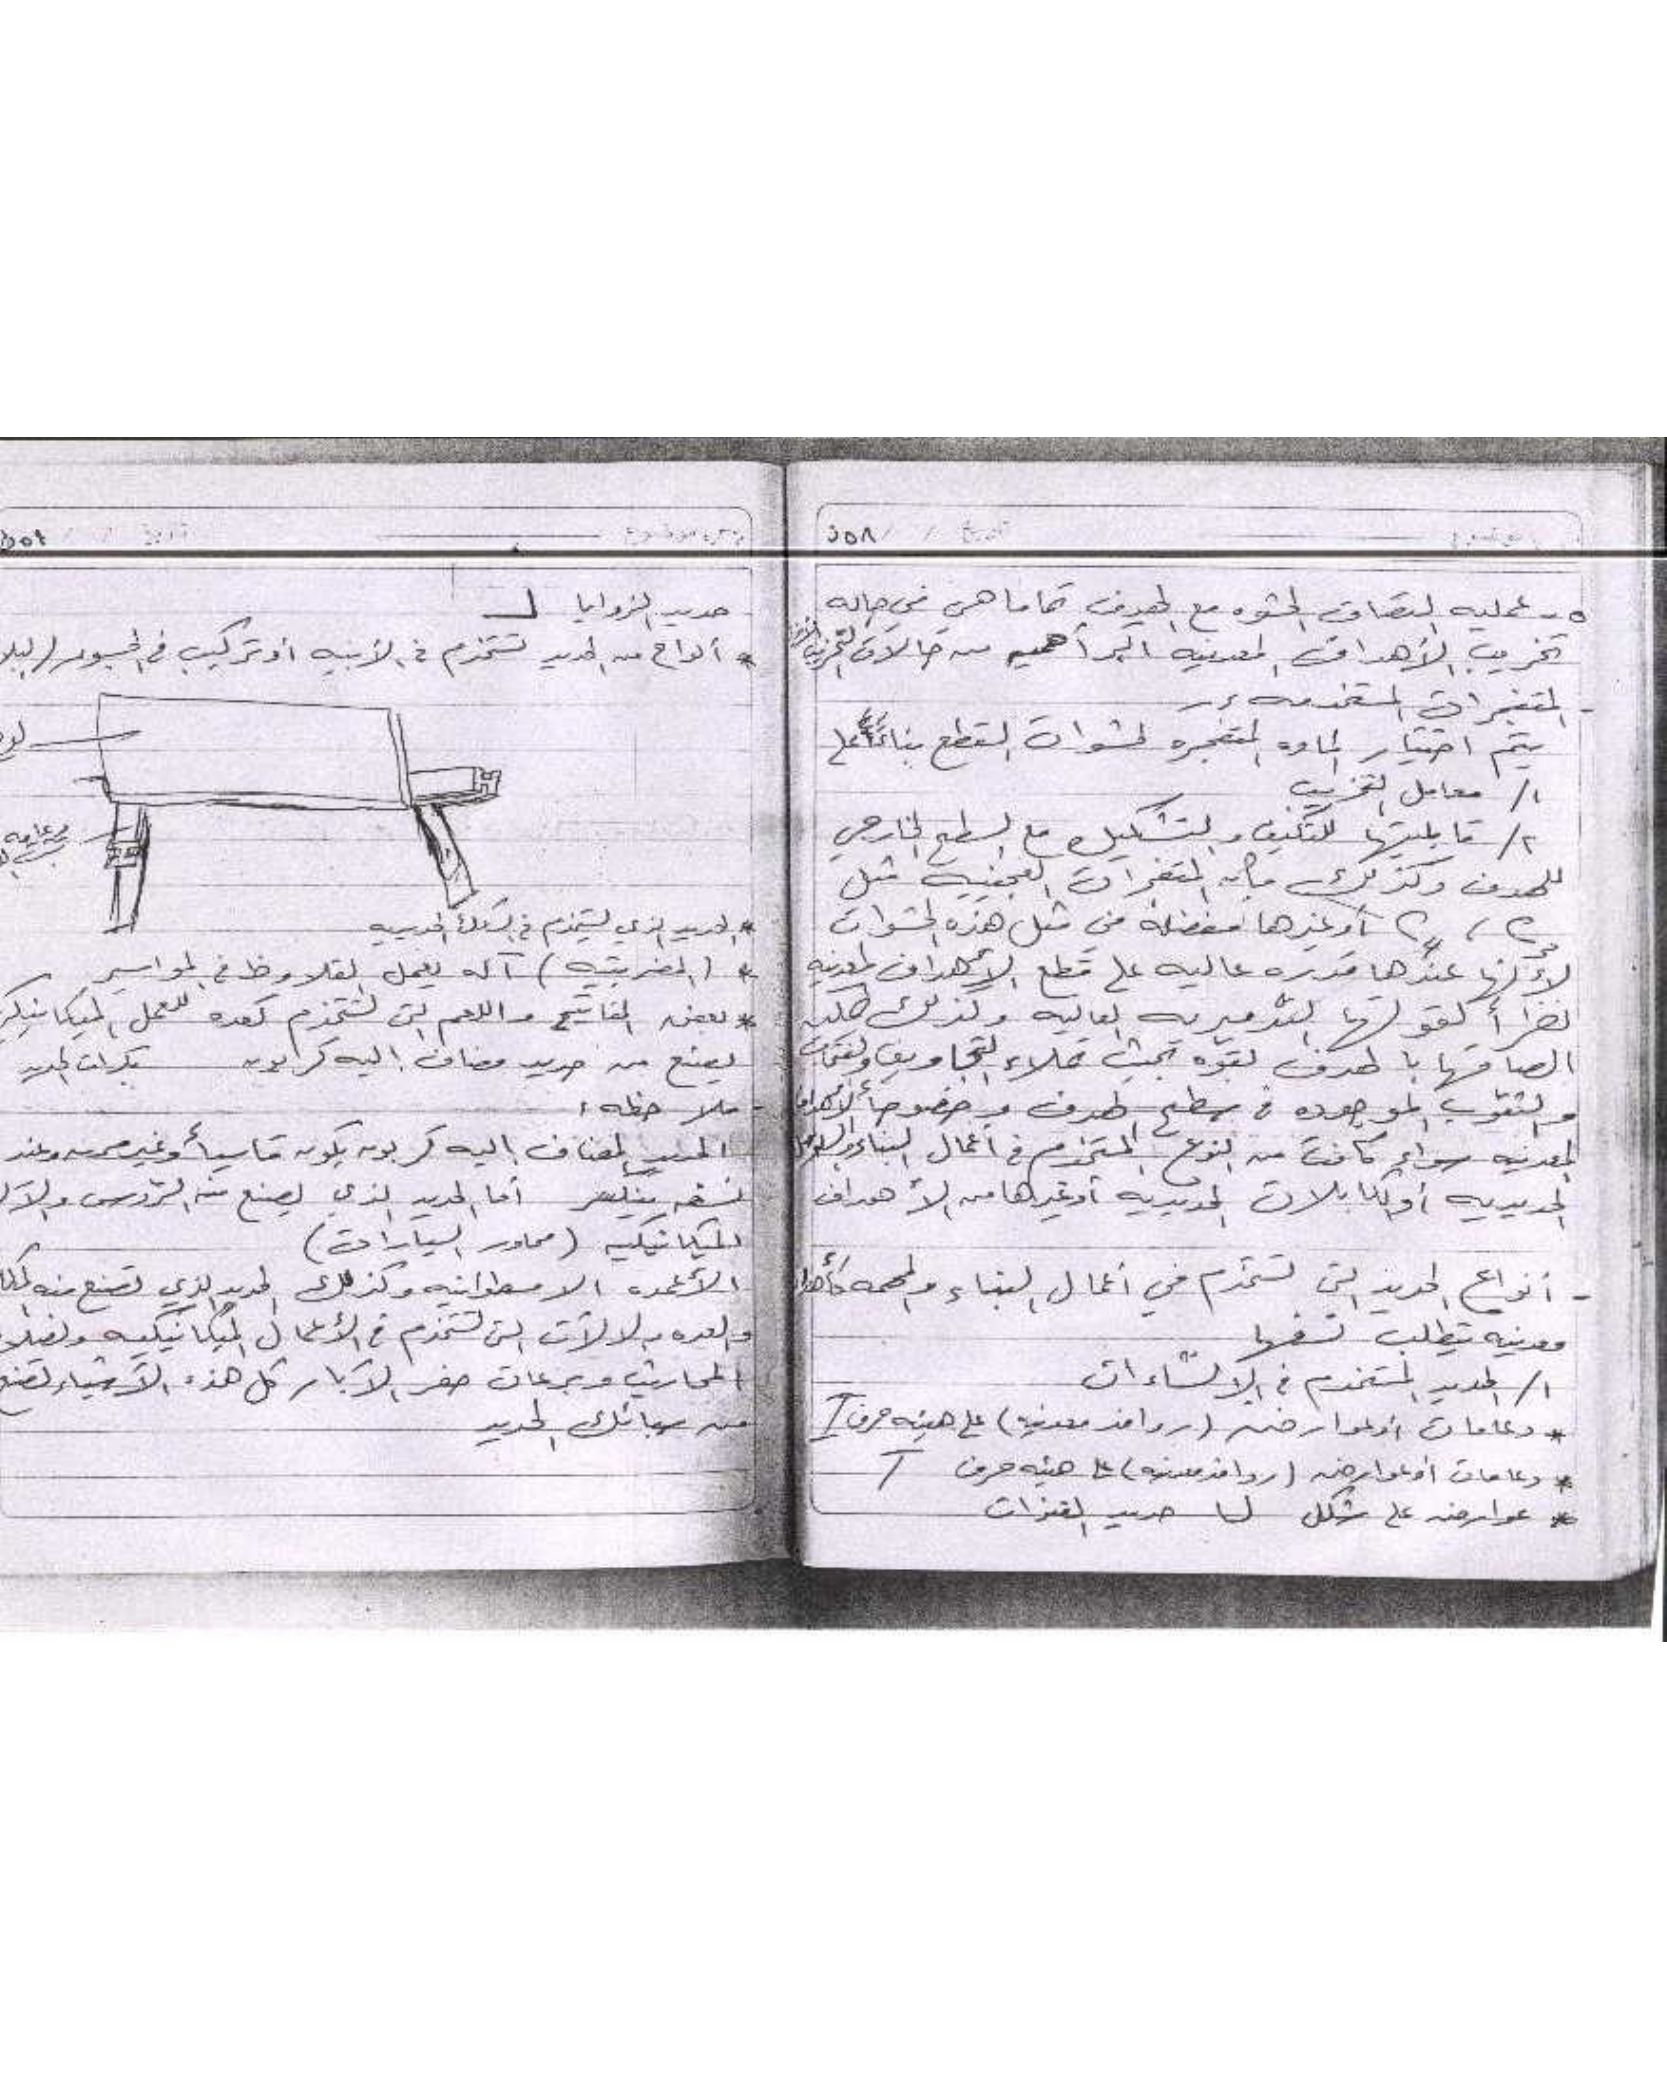 ٥- عمليه التصاق الحشوه مع الهدف تماما هي في حاله
تخريب الأهداف المعدنيه اكبر أهميه من حالات التخريب
- المتفجرات المستخدمه :-
يتم اختيار الماده المتفجره لحشوات القطع بناءاً على
١/ معامل التخريب
٢/ قابليتها للتكيف والتشكيل مع السطح الخارجي
للهدف وكذلك فإن المتفجرات العجينيه مثل
C٣ ، C٤ أو غيرها مفضلة في مثل هذه الحشوات
لأنها عندها قدره عاليه على قطع الأهداف المعدنيه
نظراً لقوتها التدميريه العاليه وكذلك
الصاقها بالهدف بقوه بحيث تملاء التجاويف والفتحات
والثقوب الموجوده في سطح الهدف وخصوصاً الأهداف
المعدنيه سواء كانت من النوع المستخدم في أعمال البناء
الحديديه أو الكابلات الحديديه أو غيرها من الأهداف
- أنواع الحديد التي تستخدم في أعمال البناء والمهمه كأهداف
معدنيه يتطلب نسفها
١/ الحديد المستخدم في الإنشاءات
* دعامات أو عوارض (روافد معدنيه) على هيئه حرف I
* دعامات أو عوارض (روافد معدنيه) على هيئه حرف T
* عوارض على شكل حديد القنوات
حديد الزوايا
* ألواح من الحديد تستخدم في الأبنيه أو تركيب في الجسور
* الحديد الذي يستخدم في السكك الحديديه
* ( ) آله يعمل القلاووظ في المواسير
* بعض المفاتيح واللقم التي تستخدم كعده للعمل الميكانيكي
يصنع من حديد مضاف اليه كربون
- ملاحظه :
الحديد المضاف اليه كربون يكون قاسياً وغير مرن وعند
نسفه ينكسر أما الحديد الذي يصنع منه التروس
الميكانيكيه (محاور السيارات)
الأعمده الاسطوانيه وكذلك الحديد الذي تصنع منه
والعدد والالات التي تستخدم في الأعمال الميكانيكيه
المحاريث وبريمات حفر الآبار كل هذه الأشياء تصنع
من سبائك الحديد